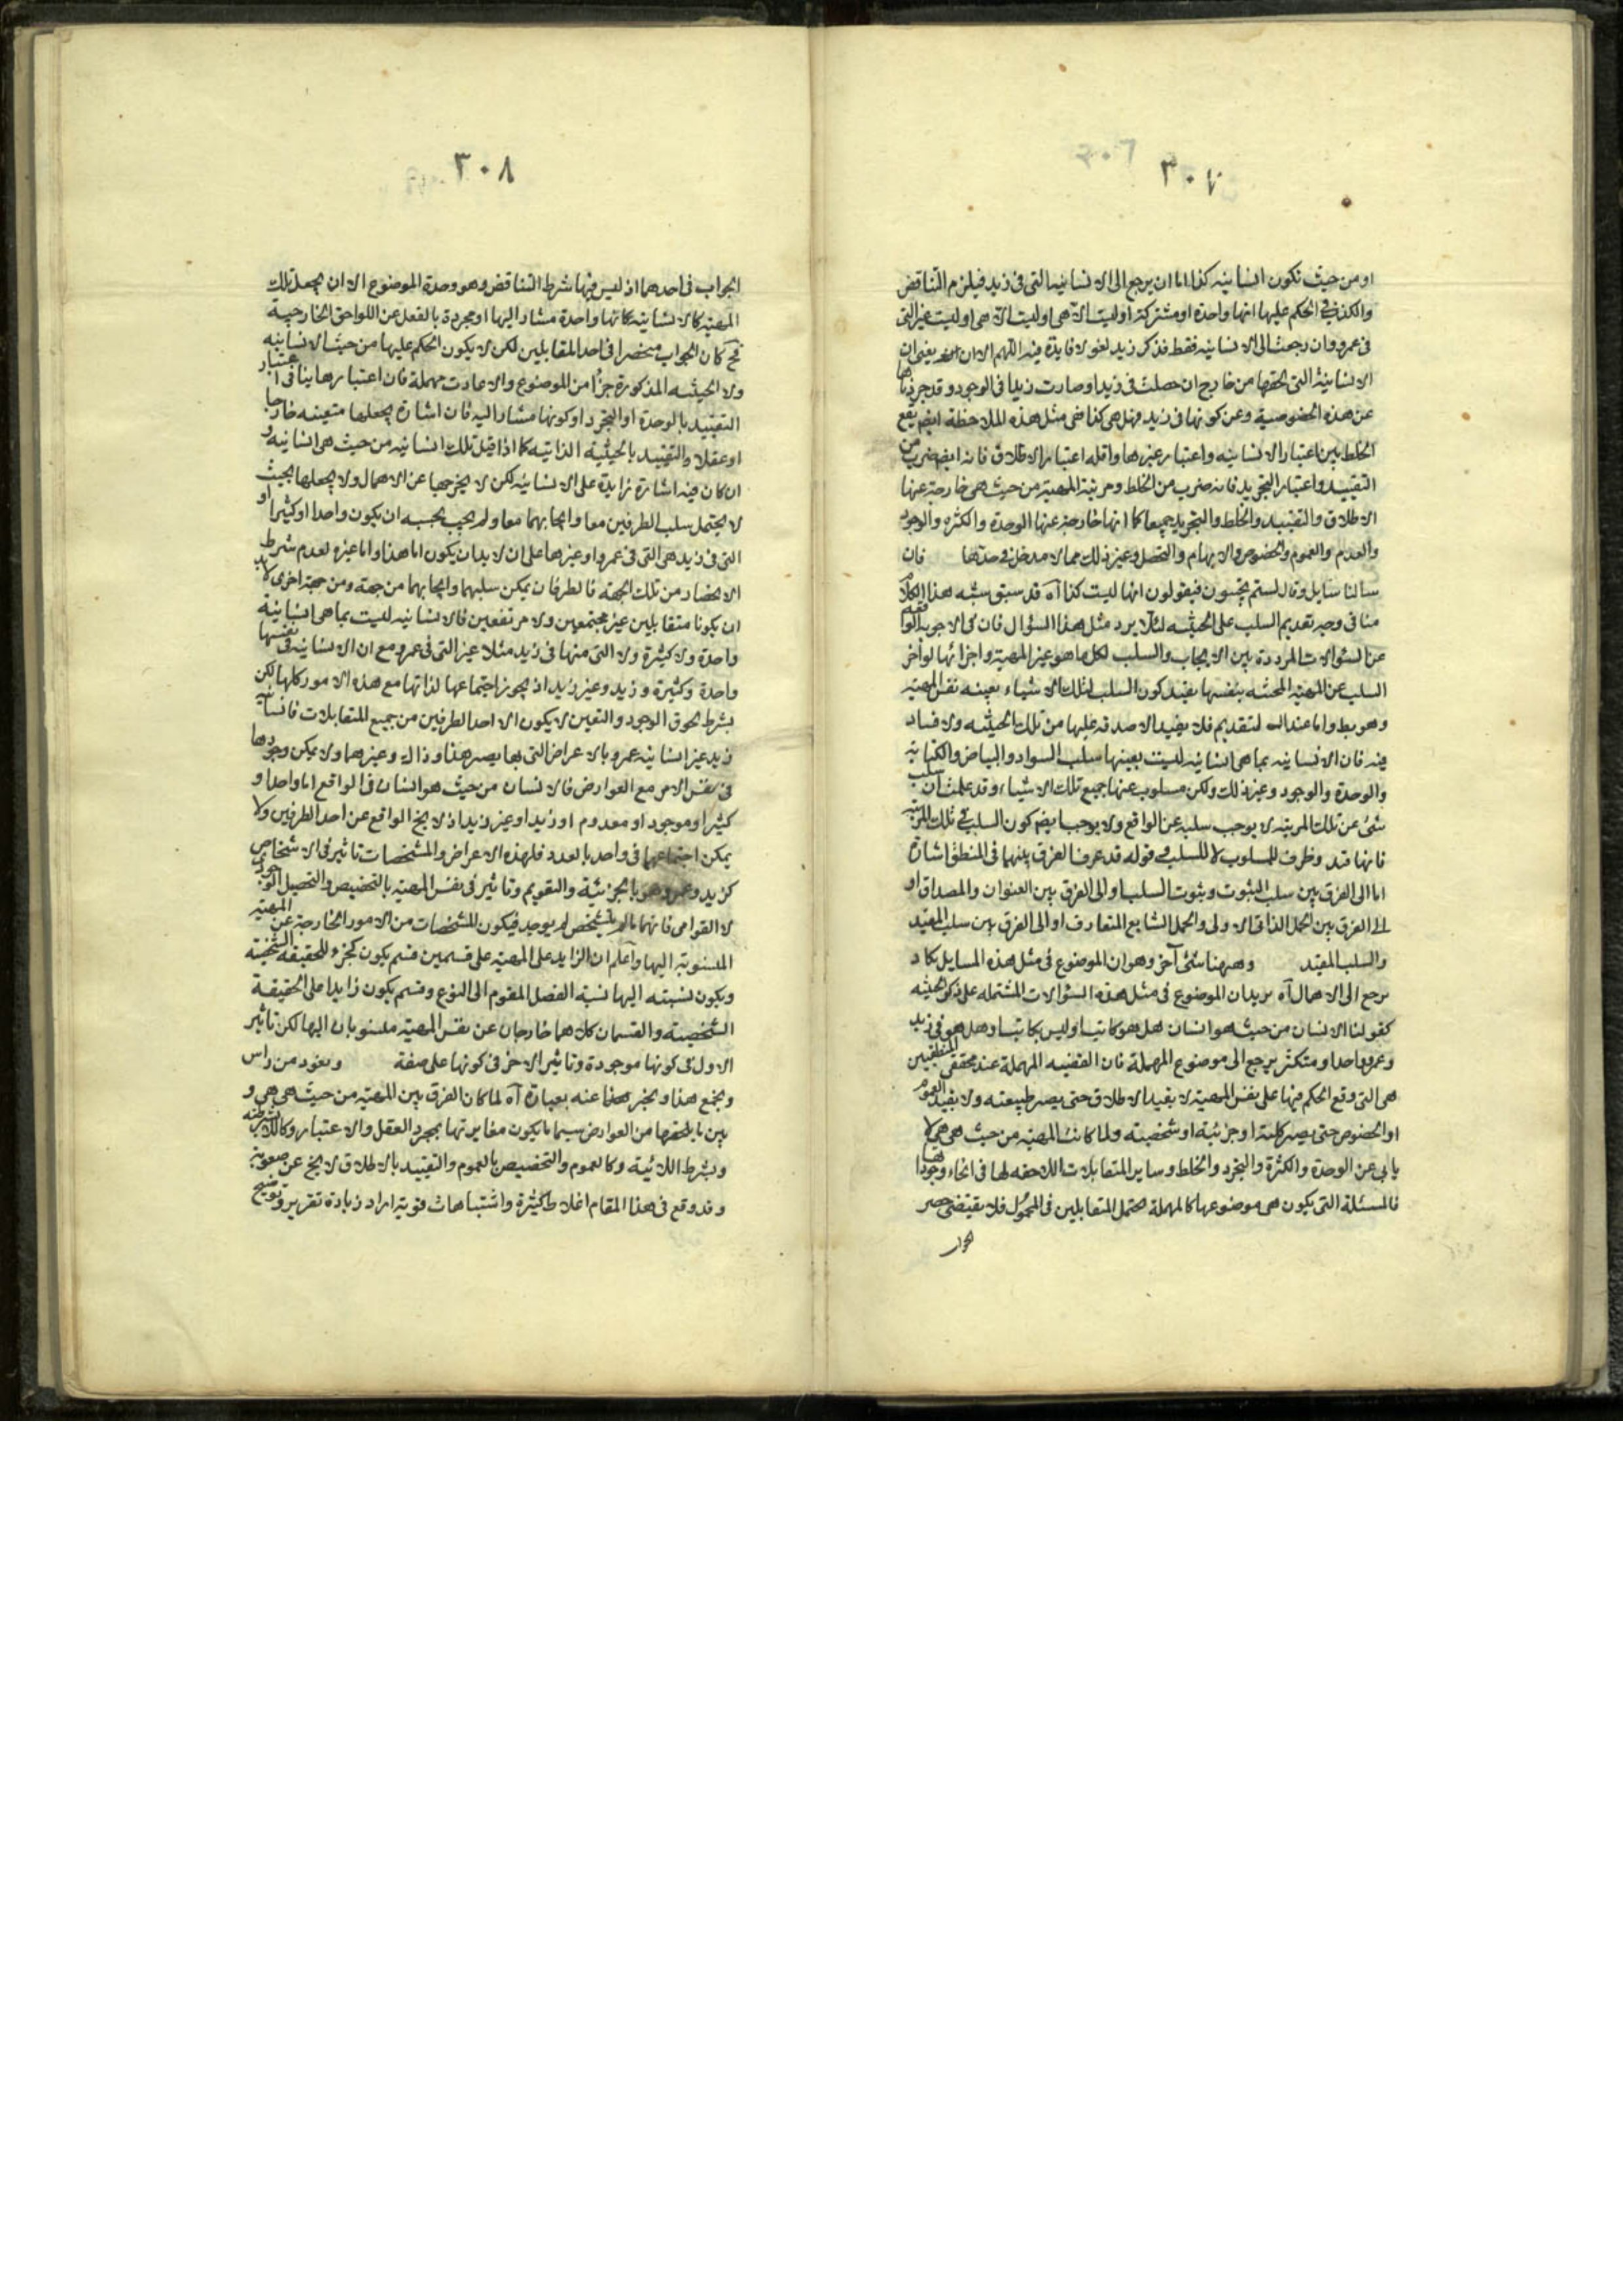 ٣٠٧
او من حيث تكون انسانيه كذا اما ان يرجع الى الانسانيه التى فى زيد فيلزم التناقض
والكذب فى الحكم عليها انها واحدة او مشتركة او ليست الا هى او ليست الا هى او ليست غير التى
فى عمرو وان رجعت الى الانسانيه فقط فذكر زيد لغو لا فايدة فيه اللهم الا ان يعنى ان
الانسانية التى لحقها من خارج ان حصلت فى زيد او صارت زيدا فى الوجود وقد جردناها
عن هذه الخصوصية وعن كونها فى زيد فهل هى كذا ففى مثل هذه الملاحظة ايضم يقع
الخلط بين اعتبار الانسانيه واعتبار غيرها واقله اعتبار الاطلاق فانه ايضم ضرب من
التقييد واعتبار التجريد فانه ضرب من الخلط ومرتبة المهية من حيث هى خارجة عنها
الاطلاق والتقييد والخلط والتجريد جميعا كما انها خارجة عنها الوحدة والكثرة والوجود
والعدم والعموم والخصوص والابهام والتحصل وغير ذلك مما لا مدخل فى حدها فان
سالنا سايل وقال لستم تجيبون فيقولون انها ليست كذا آه قد سبق شبه هذا الكلام
منا فى وجه تقديم السلب على الحيثيه لئلا يرد مثل هذا السؤال فان فى الاجوبة الواقعه
عن السئوالات المرددة بين الايجاب والسلب لكل ما هو غير المهية واجزائها لو اخر
السلب عن المهية المحيثه بنفسها يفيد كون السلب لتلك الاشياء بعينه نفس المهية
وهو بط واما عند التقديم فلا يفيد الا صدقه عليها من تلك الحيثيه ولا فساد
فيه فان الانسانيه بما هى انسانيه ليست بعينها سلب السواد والبياض والكتابة
والوحدة والوجود وغير ذلك ولكن مسلوب عنها جميع تلك الاشياء وقد علمت ان سلب
شئ عن تلك المرتبة لا يوجب سلبه عن الواقع ولا يوجب ايضم كون السلب فى تلك المرتبة
فانها قيد وظرف للمسلوب لا للسلب قوله قد عرف الفرق بينهما فى المنطق اشارة
اما الى الفرق بين سلب الثبوت وثبوت السلب او الى الفرق بين العنوان والمصداق او
الى الفرق بين الحمل الذاتى الاولى والحمل الشايع المتعارف او الى الفرق بين سلب المقيد
والسلب المقيد وههنا شئ آخر وهو ان الموضوع فى مثل هذه المسايل يكاد
يرجع الى الاهمال آه يريد ان الموضوع فى مثل هذه السئوالات المشتمله على ذكر الحيثيه
كقولنا الانسان من حيث هو انسان هل هو كاتبا او ليس بكاتب او هل هو فى زيد
وعمرو واحد او متكثر يرجع الى موضوع المهملة فان القضيه المهملة عند محققى المنطقيين
هى التى وقع الحكم فيها على نفس المهية لا بقيد الاطلاق حتى يصير طبيعته ولا بقيد العموم
او الخصوص حتى يصير كلية او جزئية او شخصية ولما كانت المهية من حيث هى هى لا
يابى عن الوحدة والكثرة والتجرد والخلط وساير المتقابلات اللاحقه لها فى انحاء وجوداتها
فالمسئلة التى يكون هى موضوعها كالمهملة تحتمل المتقابلين فى المحمول فلا يقتضى حصر
الجواب
٣٠٨
الجواب فى احدهما اذ ليس فيها شرط التناقض وهو وحدة الموضوع الا ان يجعل تلك
المهية كالانسانيه كانها واحدة مشار اليها او مجردة بالفعل عن اللواحق الخارجية
فح كان الجواب منحصرا فى احد المقابلين لكن لا يكون الحكم عليها من حيث الانسانيه
ولا الحيثيه المذكورة جزأ من الموضوع والا عادت مهملة فان اعتبارها ينافى اعتبار
التقييد بالوحدة او التجرد او كونها مشار اليه فان اشارة يجعلها متعينه خارجا
او عقلا والتقييد بالحيثية الذاتيه كما اذا قيل تلك انسانيه من حيث هى انسانيه و
ان كان فيه اشارة زايدة على الانسانيه لكن لا يخرجها عن الاهمال ولا يجعلها بحيث
لا يحتمل سلب الطرفين معا وايجابهما معا ولم يجب بحسبه ان يكون واحدا او كثيرا او
التى فى زيد هى التى فى عمرو او غيرها على ان لا بد ان يكون اما هذا واما غيره لعدم شرط
الانحصار من تلك الجهة فالطرفان يمكن سلبهما وايجابهما من جهة ومن جهة اخرى لا بد
ان يكونا متقابلين غير مجتمعين ولا مرتفعين فالانسانيه ليست بما هى انسانية
واحدة ولا كثيرة ولا التى منها فى زيد مثلا غير التى فى عمرو مع ان الانسانيه فى نفسها
واحدة وكثيرة وزيد وغير زيد اذ يجوز اجتماعها لذاتها مع هذه الامور كلها لكن
بشرط لحوق الوجود والتعين لا يكون الا احد الطرفين من جميع المتقابلات فانسانية
زيد غير انسانيه عمرو بالاعراض التى بها يصير هذا وذاك وغيرهما ولا يمكن وجودها
فى نفس الامر مع العوارض فالانسان من حيث هو انسان فى الواقع اما واحد او
كثير او موجود او معدوم او زيد او غير زيد اذ لا يخ الواقع عن احد الطرفين ولا
يمكن اجتماعهما فى واحد بالعدد فلهذه الاعراض والمشخصات تاثير فى الاشخاص
كزيد وعمرو وهو بالجزئية والتقويم وتاثير فى نفس المهية بالتخصيص والتحصيل الوجودى
لا القوامى فانها ما لم يتشخص لم يوجد فيكون المشخصات من الامور الخارجة عن المهية
المنسوبة اليها واعلم ان الزايد على المهية على قسمين قسم يكون كجزء للحقيقه الشخصية
ويكون نسبته اليها نسبة الفصل المقوم الى النوع وقسم يكون زايدا على الحقيقة
الشخصية والقسمان كلاهما خارجان عن نفس المهية منسوبان اليها لكن تاثير
الاول فى كونها موجودة وتاثير الاخر فى كونها على صفة ونعود من راس
ونجمع هذا ونخبر هذا عنه بعبارة آه لما كان الفرق بين المهية من حيث هى هى و
بين ما يلحقها من العوارض سيما ما يكون مغايرتها بمجرد العقل والاعتبار وكاللابشرطية
وبشرط اللائية وكالعموم والتخصيص بالعموم والتقييد بالاطلاق لا يخ عن صعوبة
وقد وقع فى هذا المقام اغلاط كثيرة واشتباهات قوية اراد زيادة تقرير وتوضيح